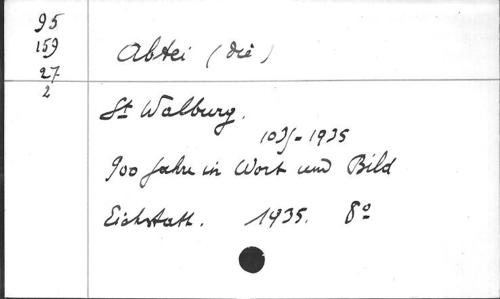 95
159
27
2
Abtei (die)
St Walburg.
1035-1935
900 Jahre in Wort und Bild
Eichstatt. 1935. 8°